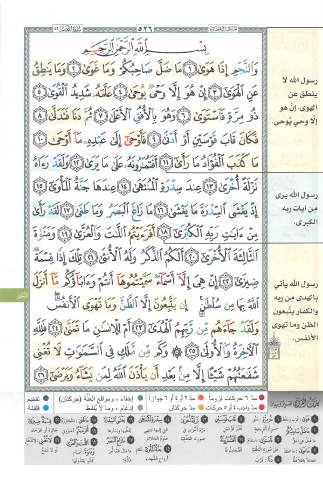 ٥٢٦
بِسْمِ اللَّهِ الرَّحْمَٰنِ الرَّحِيمِ
وَالنَّجْمِ إِذَا هَوَىٰ ١ مَا ضَلَّ صَاحِبُكُمْ وَمَا غَوَىٰ ٢ وَمَا يَنطِقُ
عَنِ الْهَوَىٰ ٣ إِنْ هُوَ إِلَّا وَحْيٌ يُوحَىٰ ٤ عَلَّمَهُ شَدِيدُ الْقُوَىٰ ٥
ذُو مِرَّةٍ فَاسْتَوَىٰ ٦ وَهُوَ بِالْأُفُقِ الْأَعْلَىٰ ٧ ثُمَّ دَنَا فَتَدَلَّىٰ ٨
فَكَانَ قَابَ قَوْسَيْنِ أَوْ أَدْنَىٰ ٩ فَأَوْحَىٰ إِلَىٰ عَبْدِهِ مَا أَوْحَىٰ ١٠
مَا كَذَبَ الْفُؤَادُ مَا رَأَىٰ ١١ أَفَتُمَارُونَهُ عَلَىٰ مَا يَرَىٰ ١٢ وَلَقَدْ رَآهُ
نَزْلَةً أُخْرَىٰ ١٣ عِندَ سِدْرَةِ الْمُنتَهَىٰ ١٤ عِندَهَا جَنَّةُ الْمَأْوَىٰ ١٥
إِذْ يَغْشَى السِّدْرَةَ مَا يَغْشَىٰ ١٦ مَا زَاغَ الْبَصَرُ وَمَا طَغَىٰ ١٧ لَقَدْ رَأَىٰ
مِنْ آيَاتِ رَبِّهِ الْكُبْرَىٰ ١٨ أَفَرَأَيْتُمُ اللَّاتَ وَالْعُزَّىٰ ١٩ وَمَنَاةَ
الثَّالِثَةَ الْأُخْرَىٰ ٢٠ أَلَكُمُ الذَّكَرُ وَلَهُ الْأُنثَىٰ ٢١ تِلْكَ إِذًا قِسْمَةٌ
ضِيزَىٰ ٢٢ إِنْ هِيَ إِلَّا أَسْمَاءٌ سَمَّيْتُمُوهَا أَنتُمْ وَآبَاؤُكُم مَّا أَنزَلَ
اللَّهُ بِهَا مِن سُلْطَانٍ إِن يَتَّبِعُونَ إِلَّا الظَّنَّ وَمَا تَهْوَى الْأَنفُسُ
وَلَقَدْ جَاءَهُم مِّن رَّبِّهِمُ الْهُدَىٰ ٢٣ أَمْ لِلْإِنسَانِ مَا تَمَنَّىٰ ٢٤ فَلِلَّهِ
الْآخِرَةُ وَالْأُولَىٰ ٢٥ وَكَم مِّن مَّلَكٍ فِي السَّمَاوَاتِ لَا تُغْنِي
شَفَاعَتُهُمْ شَيْئًا إِلَّا مِن بَعْدِ أَن يَأْذَنَ اللَّهُ لِمَن يَشَاءُ وَيَرْضَىٰ ٢٦
رسول الله لا
ينطق عن
الهوى، إن هو
إلا وحي يوحى.
رسول الله يرى
من آيات ربه
الكبرى.
رسول الله يأتي
بالهدى من ربه
والكفار يتبعون
الظن وما تهوى
الأنفس.
مد ٦ حركات لزوماً
مد ٢ أو ٤ أو ٦ جوازاً
إخفاء، ومواقع الغنة (حركتان)
تفخيم
مد واجب ٤ أو ٥ حركات
مد حركتان
إدغام، وما لا يلفظ
قلقلة